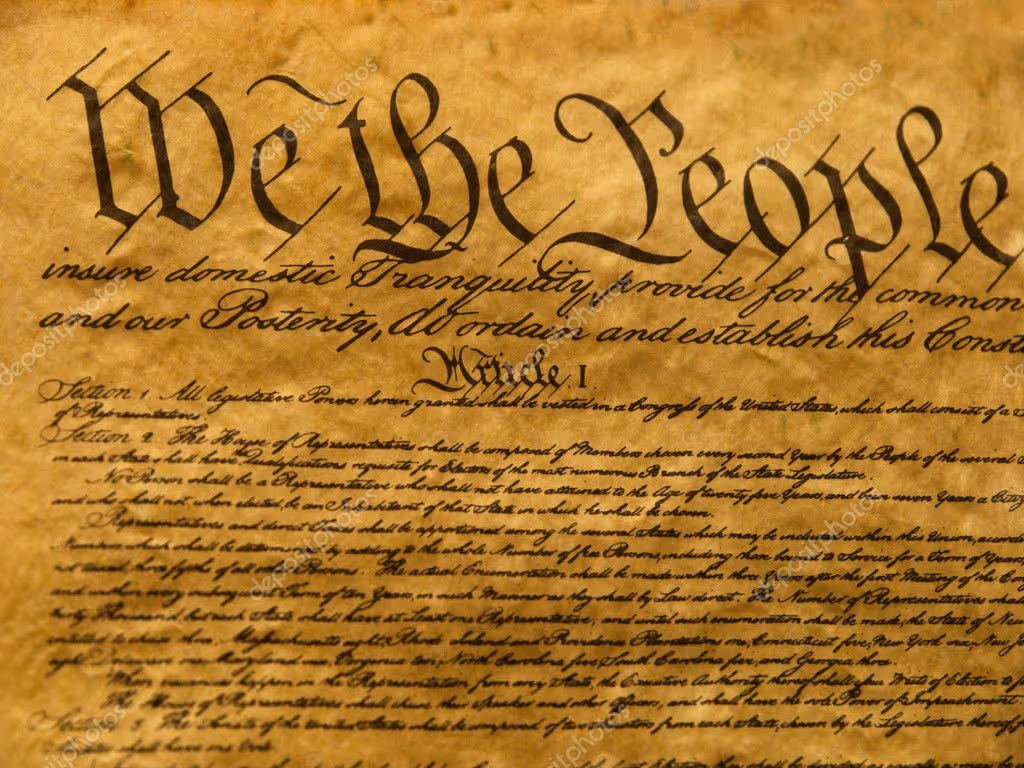 We the People
insure domestic Tranquility, provide for the common
and our Posterity, do ordain and establish this Const
Article I.
Section 1. All legislative Powers herein granted shall be vested in a Congress of the United States, which shall consist of a S
of Representatives.
Section 2. The House of Representatives shall be composed of Members chosen every second Year by the People of the several
in each State shall have Qualifications requisite for Electors of the most numerous Branch of the State Legislature.
No Person shall be a Representative who shall not have attained to the Age of twenty five Years, and been seven Years a Citiz
and who shall not, when elected, be an Inhabitant of that State in which he shall be chosen.
Representatives and direct Taxes shall be apportioned among the several States which may be included within this Union, accord
Numbers, which shall be determined by adding to the whole Number of free Persons, including those bound to Service for a Term of Years,
not taxed, three fifths of all other Persons. The actual Enumeration shall be made within three Years after the first Meeting of the Con
and within every subsequent Term of ten Years, in such Manner as they shall by Law direct. The Number of Representatives shall
thirty Thousand, but each State shall have at Least one Representative; and until such enumeration shall be made, the State of New
entitled to chuse three, Massachusetts eight, Rhode Island and Providence Plantations one, Connecticut five, New York six, New J
eight, one, Maryland six, Virginia ten, North Carolina five, South Carolina five, and Georgia three.
When vacancies happen in the Representation from any State, the Executive Authority thereof shall issue Writs of Election to f
The House of Representatives shall chuse their Speaker and other Officers; and shall have the sole Power of Impeachment.
Section 3. The Senate of the United States shall be composed of two Senators from each State, chosen by the Legislature thereof, f
Senator shall have one Vote.
depositphotos